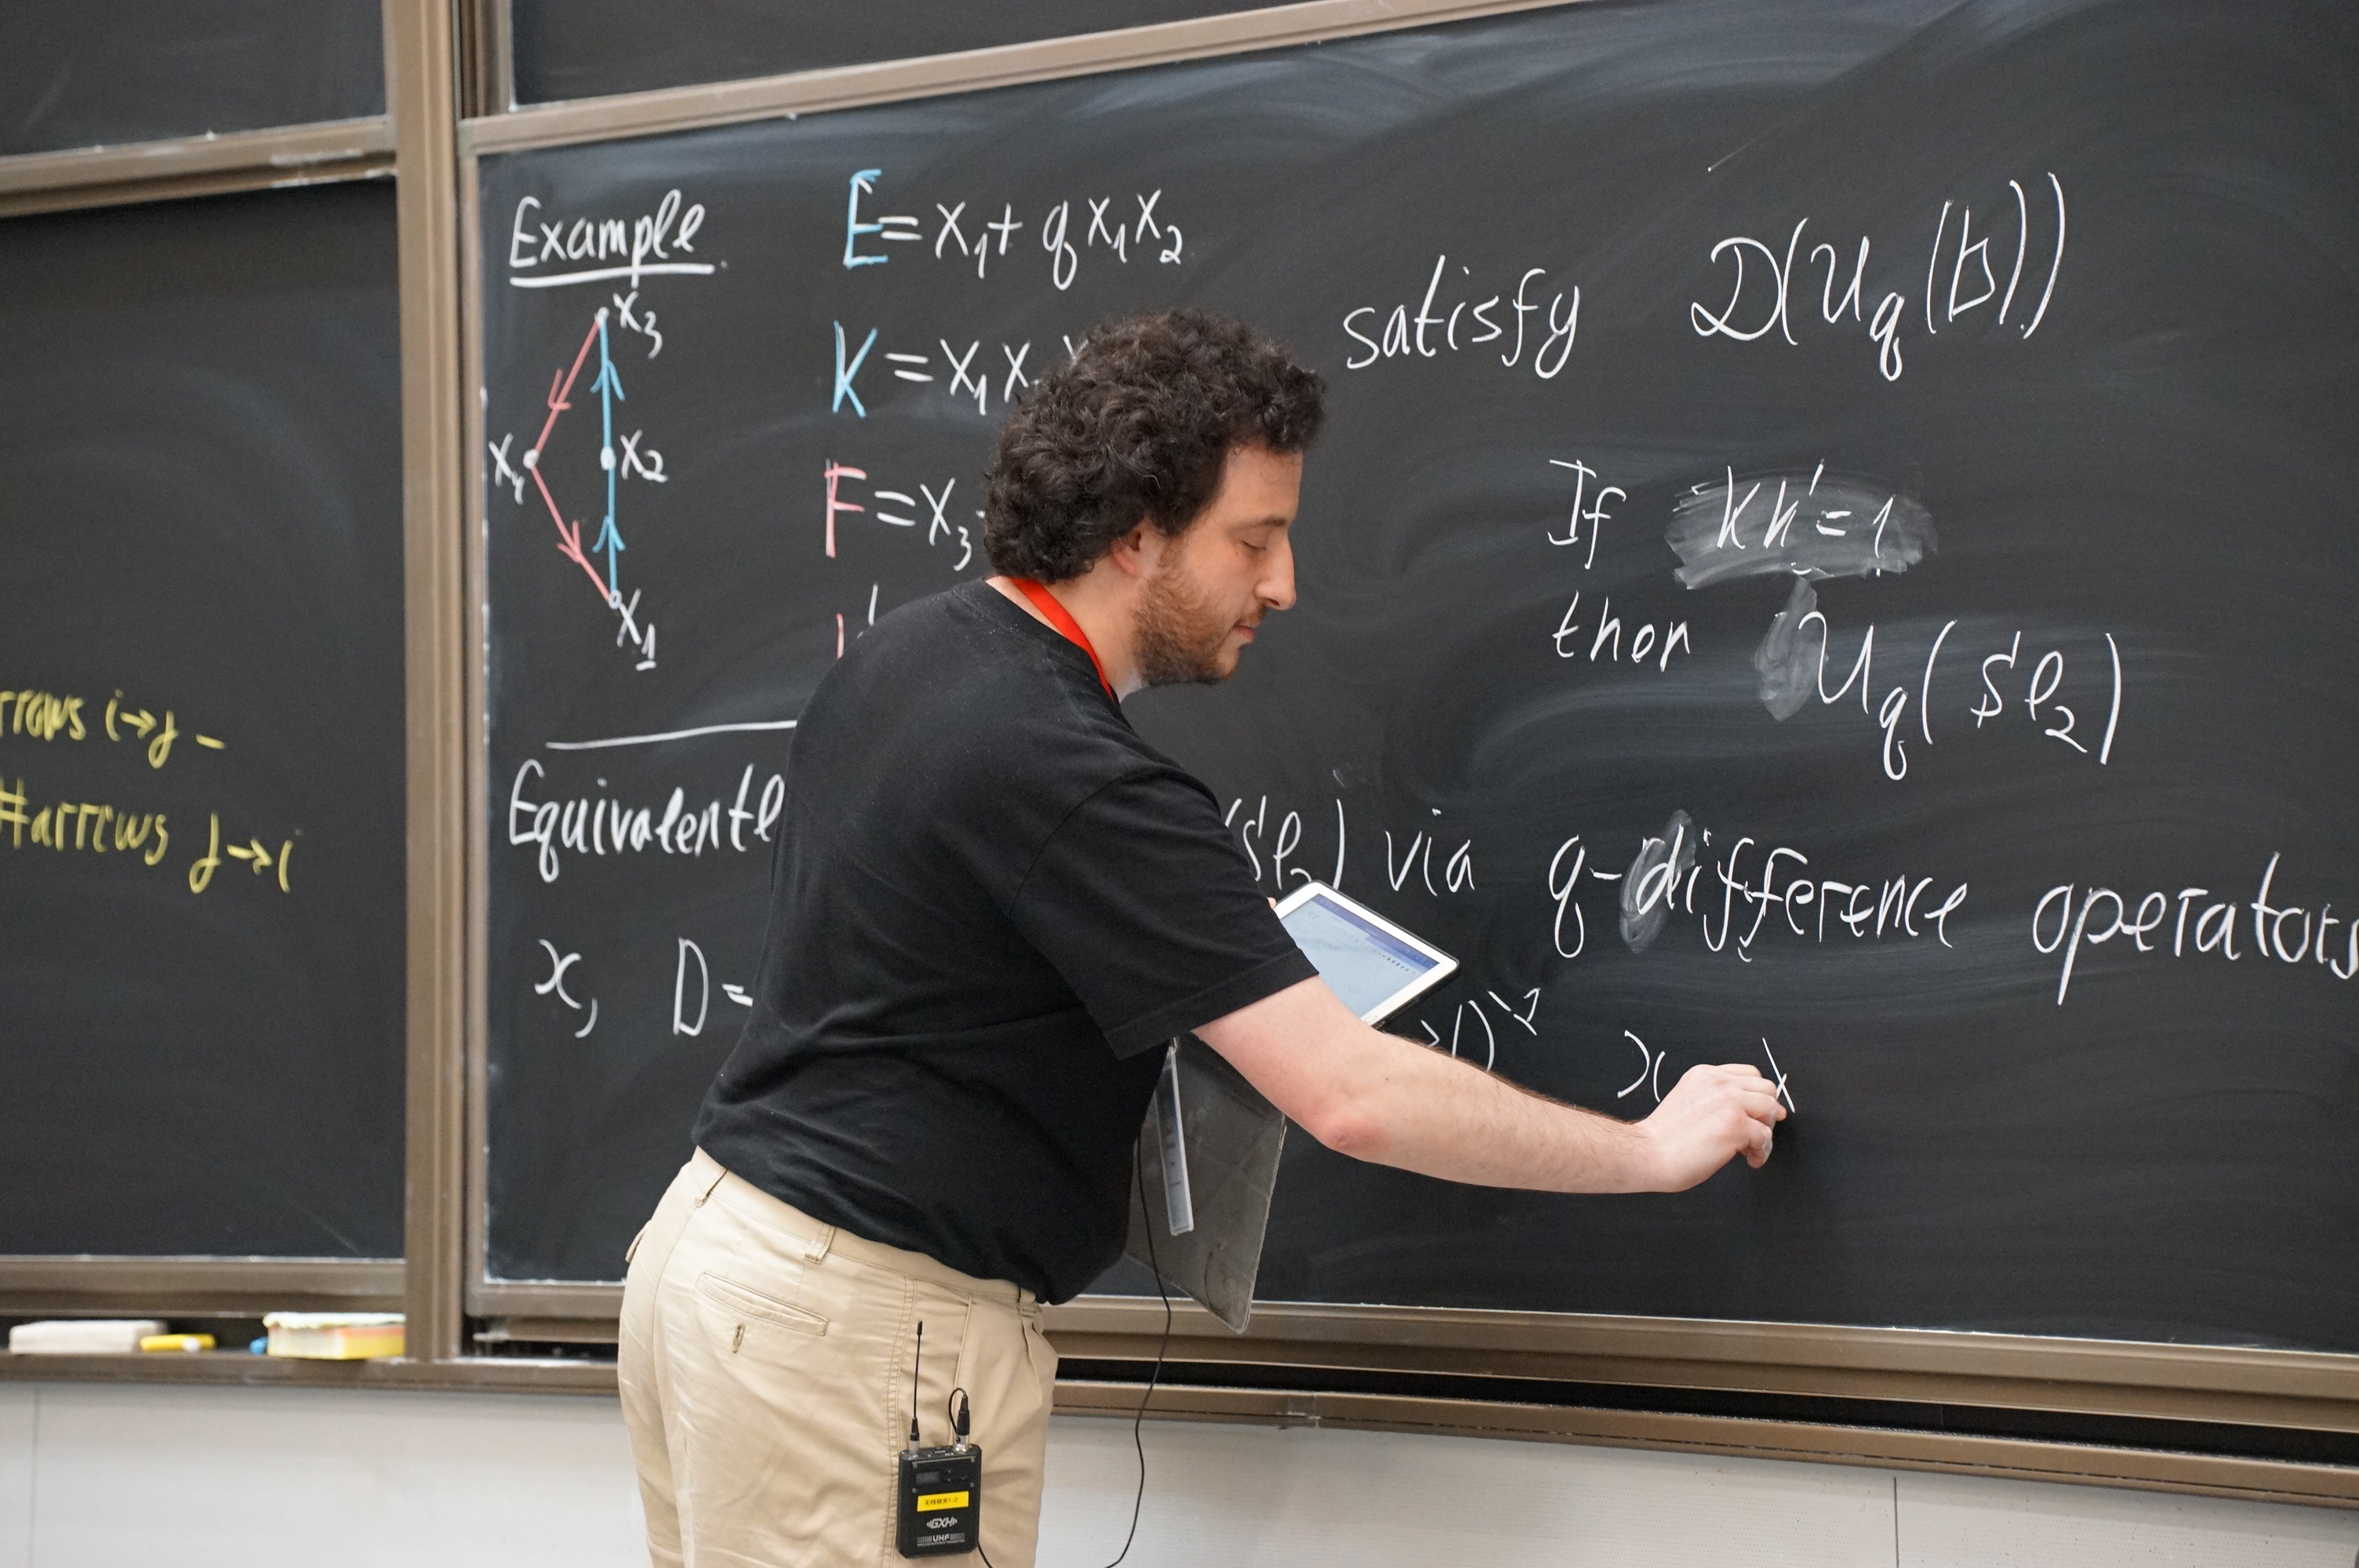 rrows i→j –
#arrows j→i
Example
X₃
X₂
X₄
X₁
E = X₁ + q X₁ X₂
K = X₁ X
F = X₃
satisfy D(U_q(b))
If KK' = 1
then U_q(sl₂)
Equivalentl (sl₂) via q-difference operators
x, D =
GXH
UHF